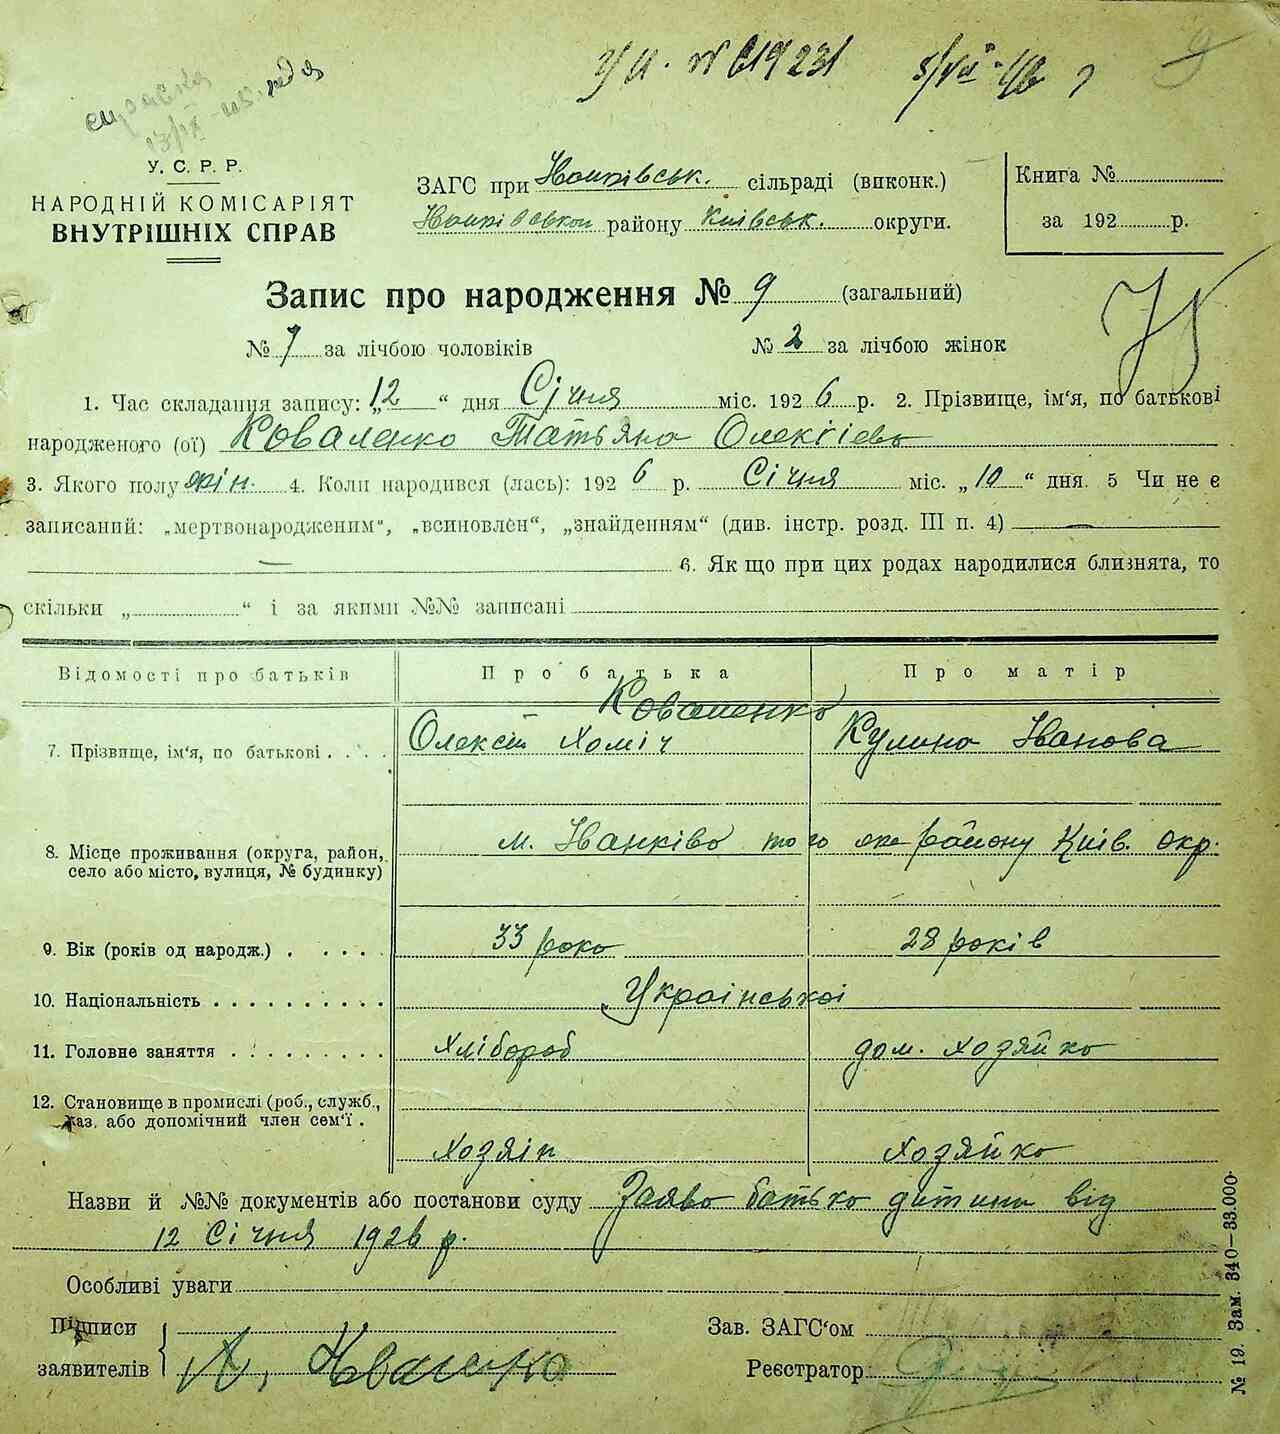 УИ. № 619231 5/VII-46 р
справка
13/IX-45.
У. С. Р. Р.
НАРОДНІЙ КОМІСАРІЯТ
ВНУТРІШНІХ СПРАВ
ЗАГС при Іванківськ. сільраді (виконк.)
Іванківськом району Київськ. округи.
Книга №
за 192 р.
Запис про народження № 9 (загальний)
75
№ 7 за лічбою чоловіків № 2 за лічбою жінок
1. Час складання запису: „12“ дня Січня міс. 1926 р. 2. Прізвище, ім‘я, по батькові
народженого (ої) Коваленко Татьяна Олексієвь
3. Якого полу жін. 4. Коли народився (лась): 1926 р. Січня міс. „10“ дня. 5 Чи не є
записаний: „мертвонародженим“, „всиновлен“, „знайденням“ (див. інстр. розд. III п. 4) —
— 6. Як що при цих родах народилися близнята, то
скільки „ “ і за якими №№ записані
Відомості про батьків Про батька Про матір
Коваленко
7. Прізвище, ім‘я, по батькові . . . . Олексій Хоміч Кулина Іванова
8. Місце проживання (округа, район, м. Іванків того же району Київ. окр.
село або місто, вулиця, № будинку)
9. Вік (років од народж.) . . . . . 33 роко 28 років
10. Національність . . . . . . . . . . Української
11. Головне заняття . . . . . . . . . Хлібороб дом. хозяйка
12. Становище в промислі (роб., служб.,
каз. або допомічний член сем‘ї .
Хозяін Хозяйка
Назви й №№ документів або постанови суду Заява батько дитини від
12 Січня 1926 р.
Особливі уваги
Підписи
заявителів
Зав. ЗАГС‘ом
Реєстратор
№ 19. Зам. 340—33.000.